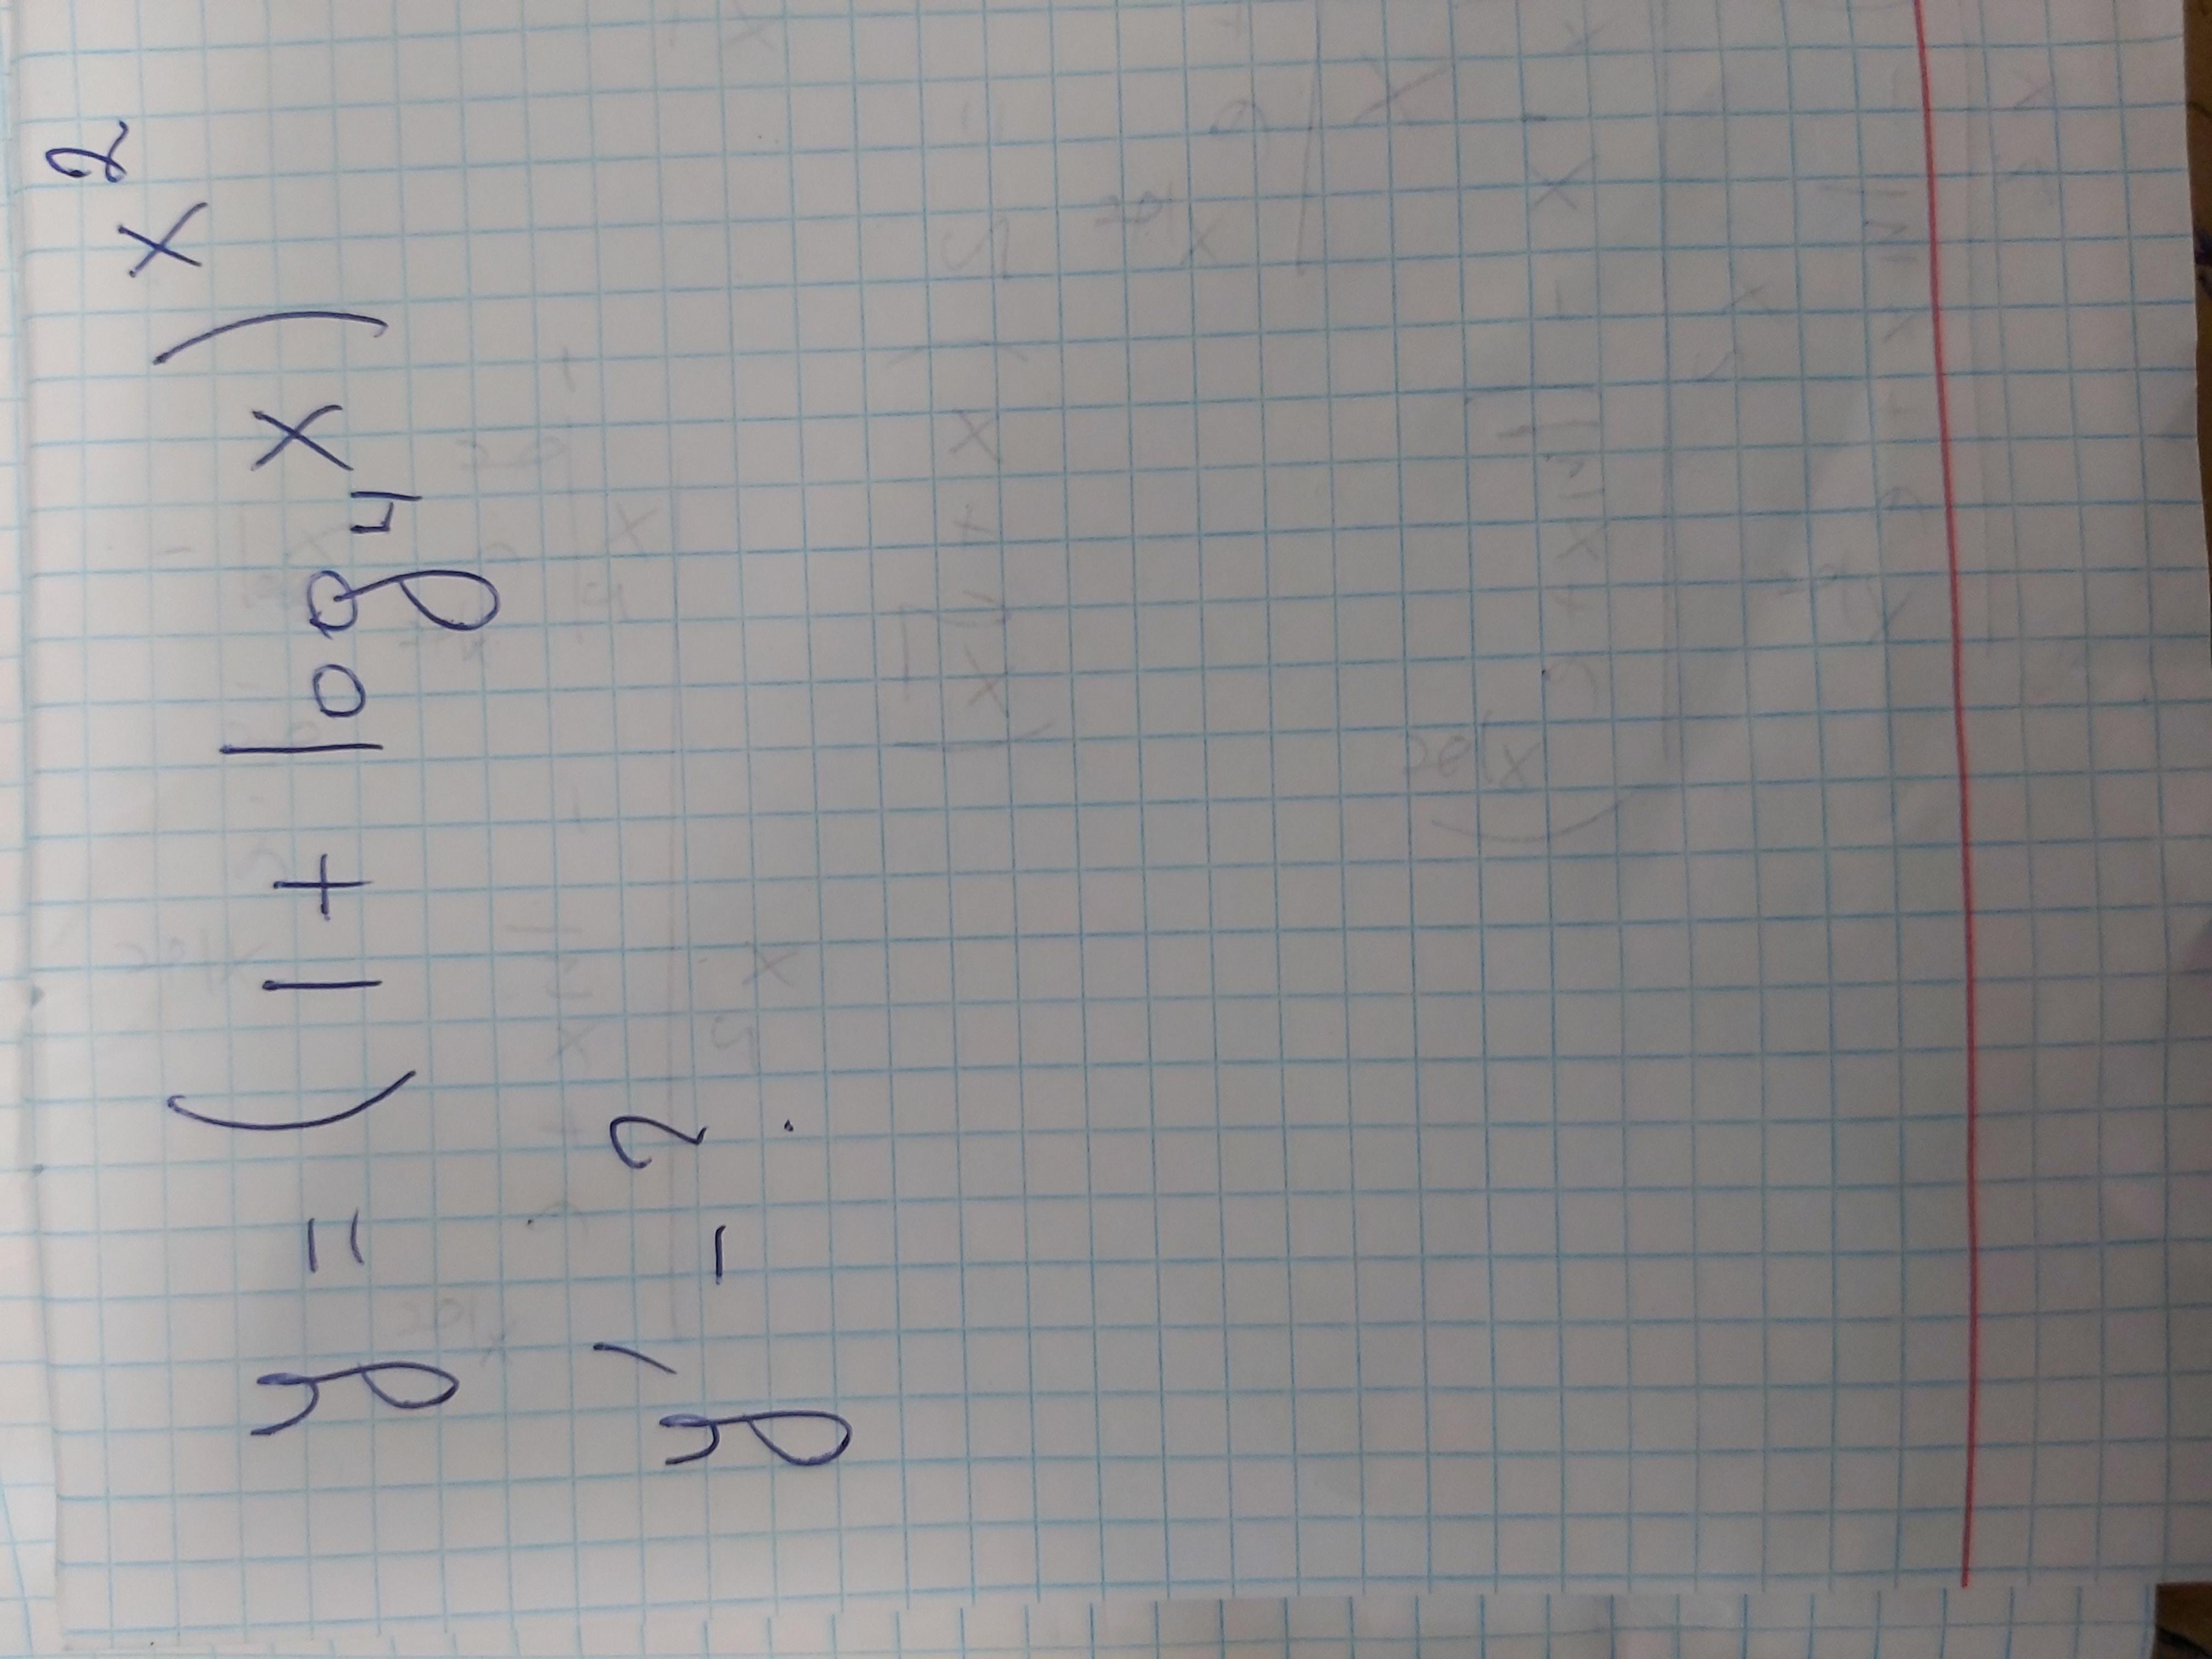 y = (1 + log₄x)^x²
y' - ?